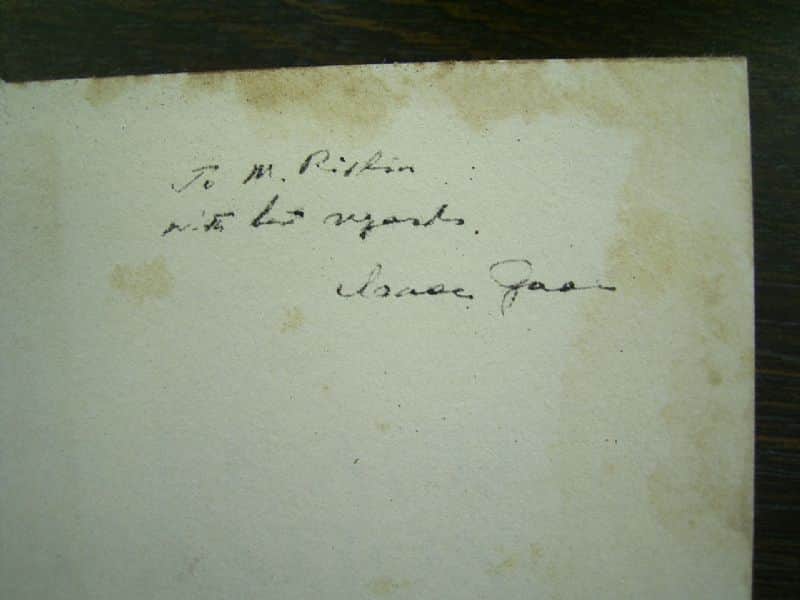 To M. Riskin
with best regards.
Isaac